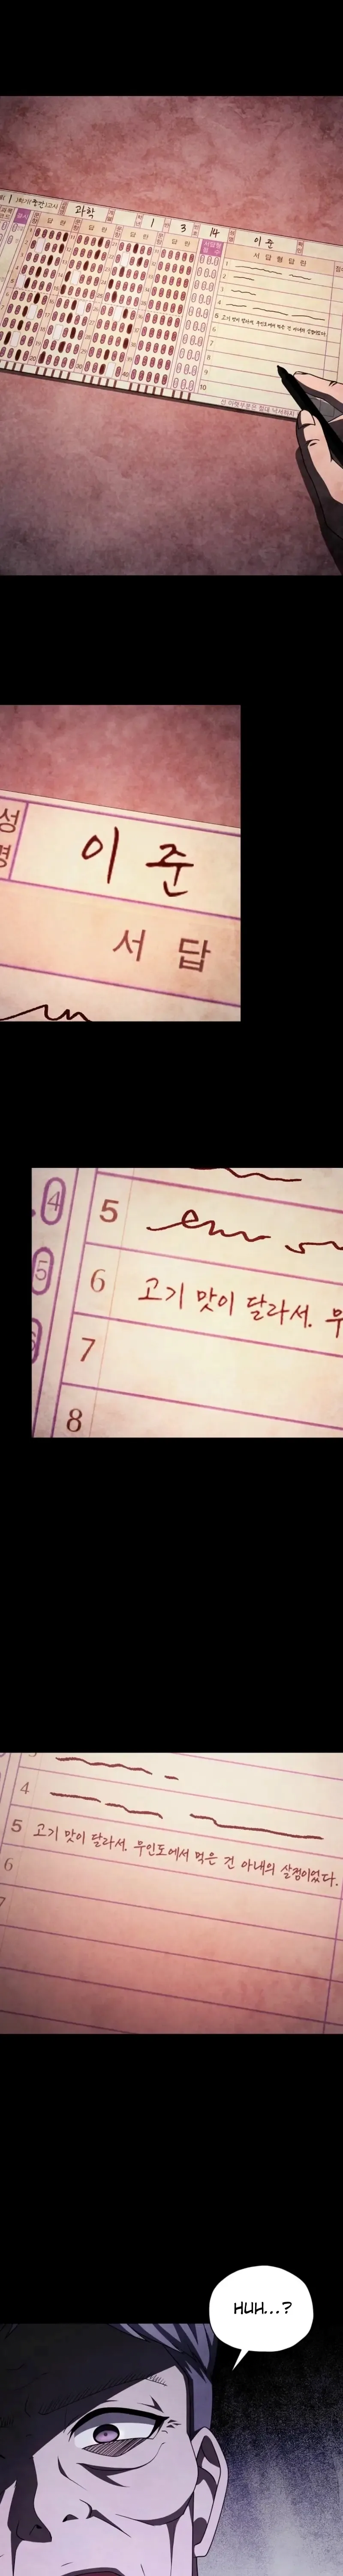 1
학기(중간)고사
과학
1
3
14
이 준
답 란
답 란
답 란
답 란
서 답 형 답 란
1
2
3
4
5 고기 맛이 달라서. 무인도에서 먹은 건 아내의 살점이었다.
6
7
8
9
10
성명
이 준
서 답
4
5
5
6 고기 맛이 달라서. 무
7
8
4
5 고기 맛이 달라서. 무인도에서 먹은 건 아내의 살점이었다.
6
7
HUH...?